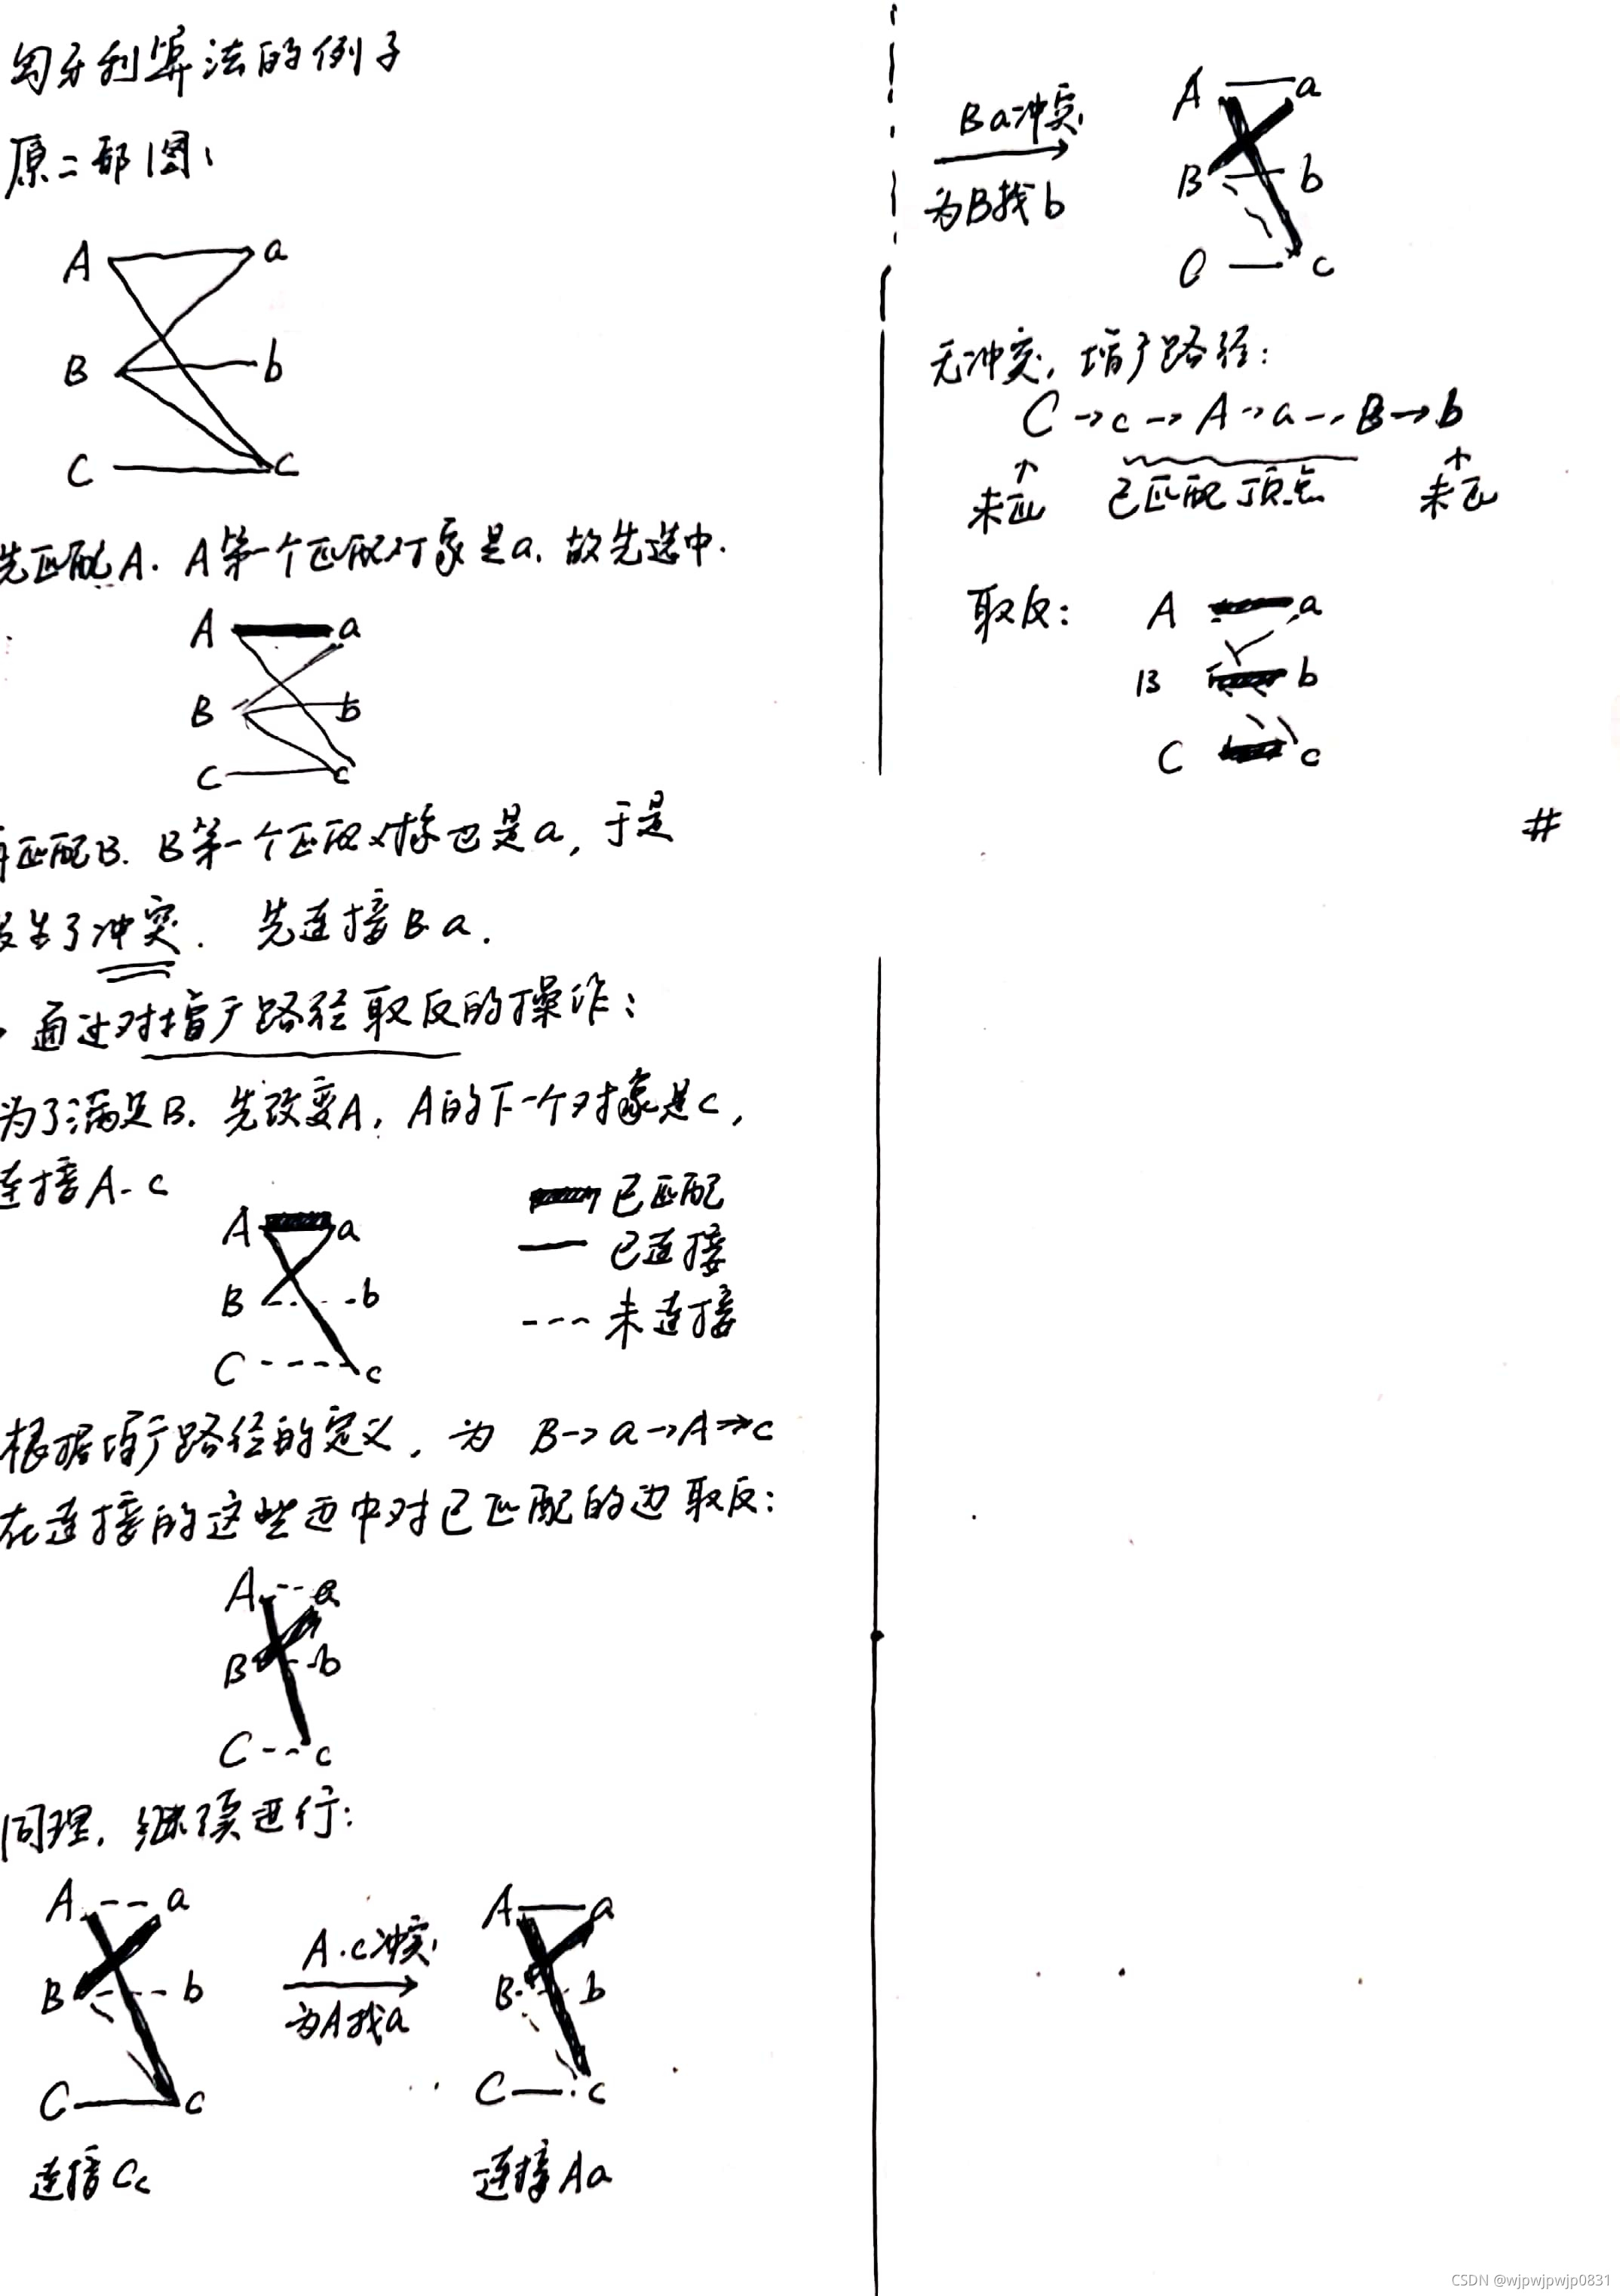 匈牙利算法的例子
原二部图:
A a
B b
C c
先匹配A. A第一个匹配对象是a. 故先选中.
A a
B b
C c
再匹配B. B第一个匹配对象也是a, 于是
发生了冲突. 先连接B-a.
通过对增广路径取反的操作:
为了满足B. 先改变A, A的下一个对象是c,
连接A-c
A a
B b
C c
已匹配
已连接
--- 未连接
根据增广路径的定义, 为 B→a→A→c
在连接的这些边中对已匹配的边取反:
A a
B b
C c
同理, 继续进行:
A a
B b
C c
连接Cc
A.c冲突
为A找a
A a
B b
C c
连接Aa
Ba冲突
为B找b
A a
B b
C c
无冲突, 增广路径:
C→c→A→a→B→b
未匹 已匹配顶点 未匹
取反:
A a
B b
C c
#
CSDN @wjpwjpwjp0831